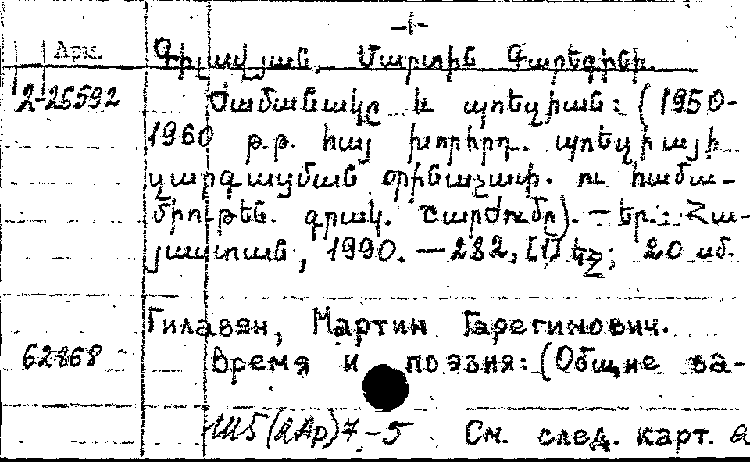 -1-
Арм.
Գիլավյան, Մարտին Գարեգինի.
2-25592
Ժամանակը և պոեզիան: (1950-
1960 թ.թ. հայ խորհրդ. պոեզիայի
զարգացման օրինաչափ. ու համա-
միութեն. գրակ. շարժումը). — Եր.: Հա-
յաստան, 1990. — 232, [1] էջ; 20 սմ.
Гилавян, Мартин Гарегинович.
62868
Время и поэзия: (Общие за-
Ш5(2Ар)7-5 См. след. карт. 2